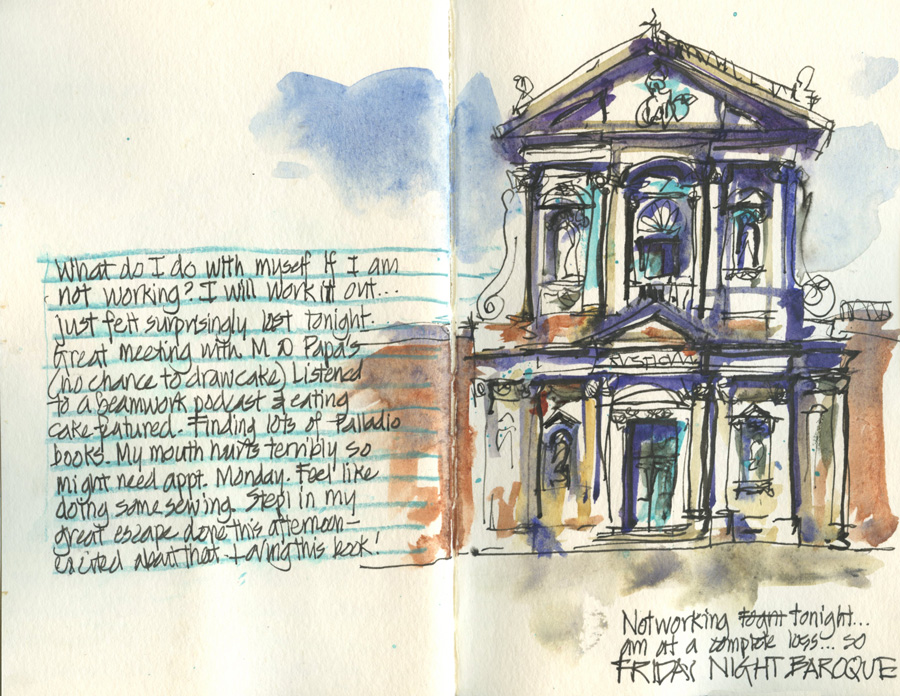 What do I do with myself if I am
not working? I will work it out...
Just felt surprisingly lost tonight.
Great meeting with M @ Papa's
(no chance to draw cake) Listened
to a Seamwork podcast & eating
cake featured. Finding lots of Palladio
books. My mouth hurts terribly so
might need appt. Monday. Feel like
doing some sewing. Step 1 in my
great escape done this afternoon -
excited about that + a/ing this book!
Not working tonight...
am at a complete loss... so
FRIDAY NIGHT BAROQUE